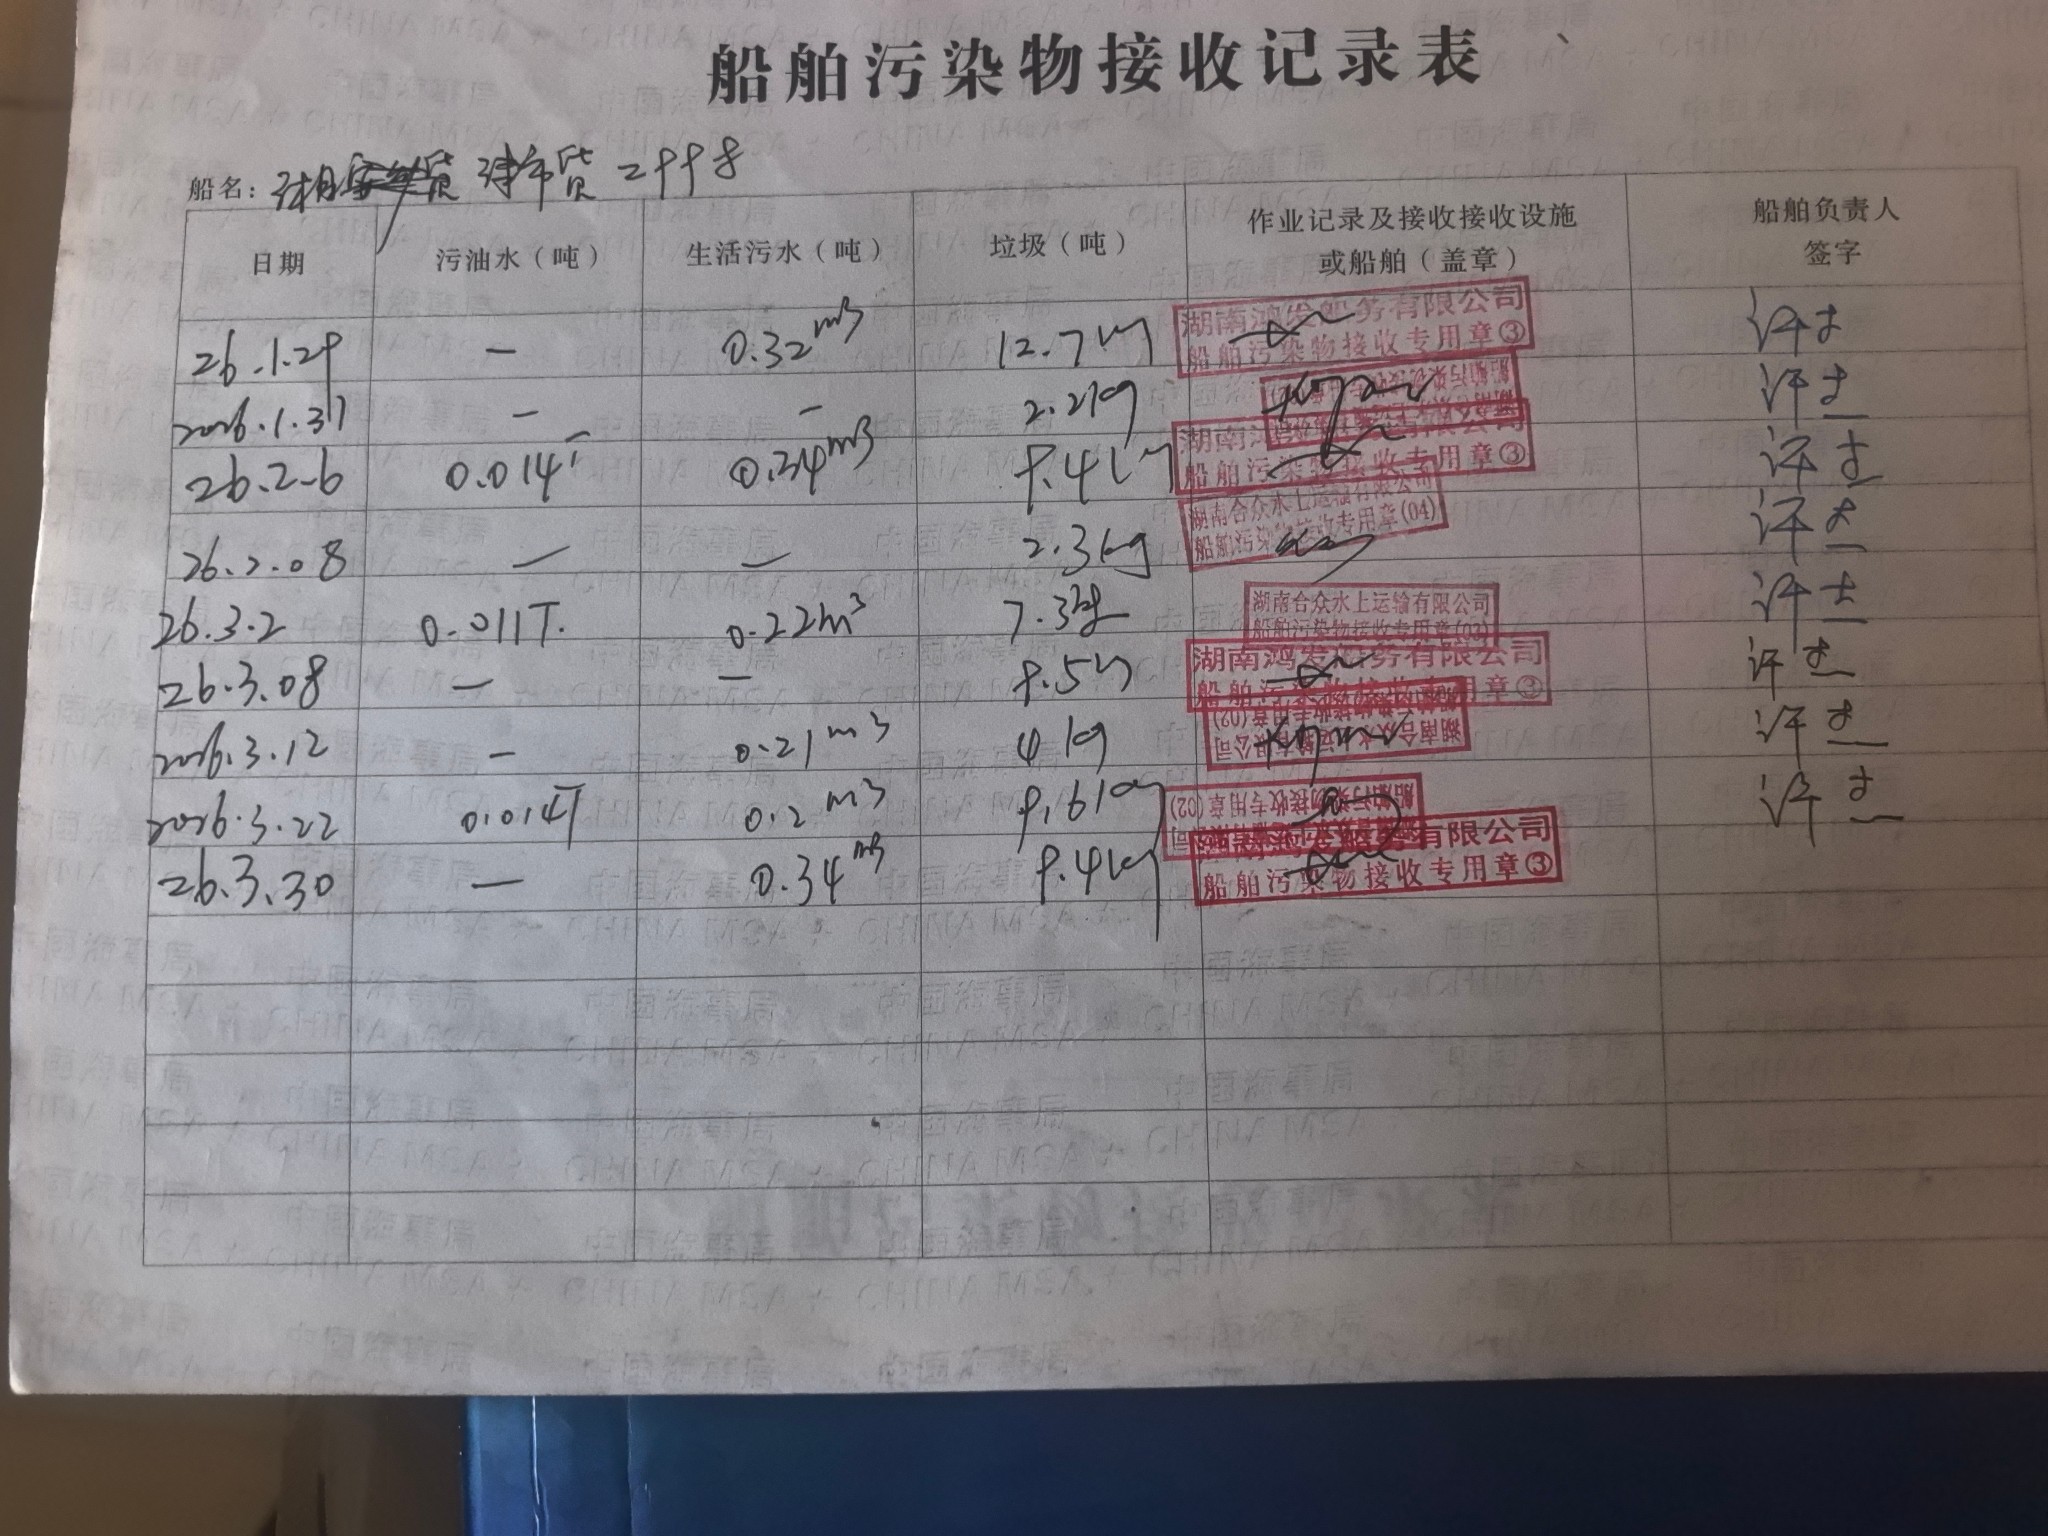 船舶污染物接收记录表
船名: 津市货 2998
日期 污油水(吨) 生活污水(吨) 垃圾(吨) 作业记录及接收接收设施或船舶(盖章) 船舶负责人签字
26.1.29 — 0.32m3 12.7kg 湖南鸿发船务有限公司 船舶污染物接收专用章③ 许
2026.1.31 — — 2.2kg 许
26.2.6 0.014T 0.34m3 9.4kg 湖南鸿发船务有限公司 船舶污染物接收专用章③ 许
26.2.08 — — 2.3kg 湖南合众水上运输有限公司 船舶污染物接收专用章(04) 许
26.3.2 0.011T. 0.22m³ 7.3kg 湖南合众水上运输有限公司 船舶污染物接收专用章(03) 许
26.3.08 — — 9.5kg 湖南鸿发船务有限公司 船舶污染物接收专用章③ 许
2026.3.12 — 0.21m3 4kg 湖南合众水上运输有限公司 船舶污染物接收专用章(02) 许
2026.3.22 0.014T 0.2m3 9.6kg 船舶污染物接收专用章(02) 许
26.3.30 — 0.34m3 9.4kg 湖南鸿发船务有限公司 船舶污染物接收专用章③